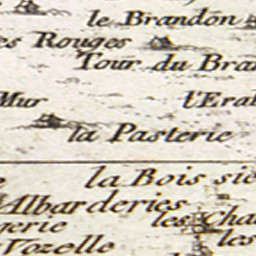 le Brandon
es Rouges
Tour du Bran
Mur
l'Eral
la Pasterie
la Bois sie
Albarderies
gerie
les Cha
Vozelle
les